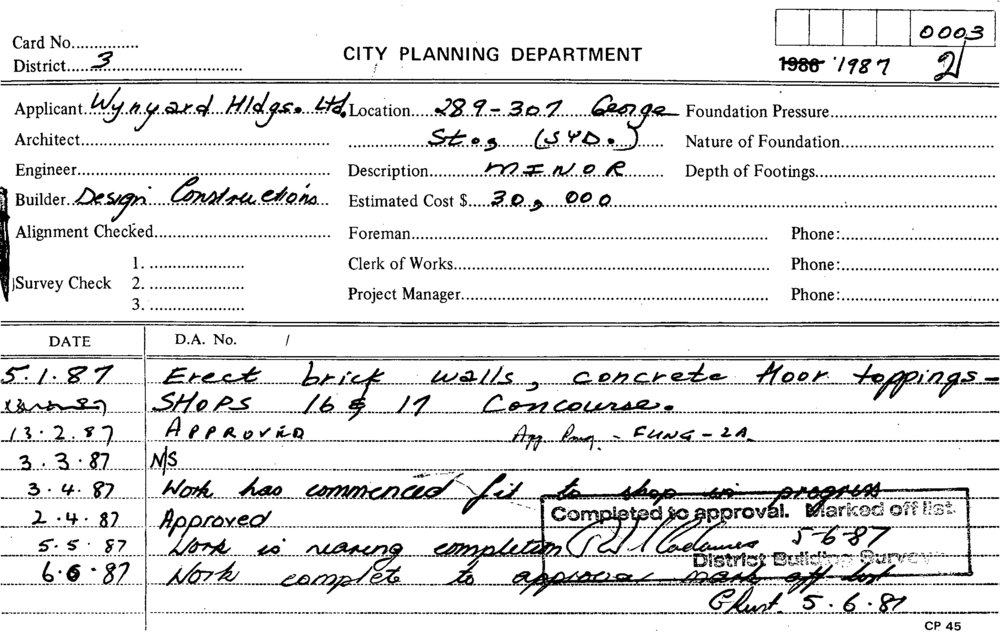 0003
Card No...............
District.....3..............................
CITY PLANNING DEPARTMENT
1986 1987 2
Applicant Wynyard Hldgs. Ltd. Location 289-307 George Foundation Pressure
Architect St., (SYD.) Nature of Foundation
Engineer Description MINOR Depth of Footings
Builder Design Constructions Estimated Cost $ 30,000
Alignment Checked Foreman Phone:
1. Clerk of Works Phone:
Survey Check 2.
3. Project Manager Phone:
DATE D.A. No. /
5.1.87 Erect brick walls, concrete floor toppings -
SHOPS 16 & 17 Concourse.
13.2.87 APPROVED App. - FUNG - 2A
3.3.87 N/S
3.4.87 Work has commenced fit to shop in progress
2.4.87 Approved
Completed to approval. Marked off list.
5.5.87 Work is nearing completion 5-6-87
District Building Surveyor
6.6.87 Work complete to approval mark off list
5.6.87
CP 45